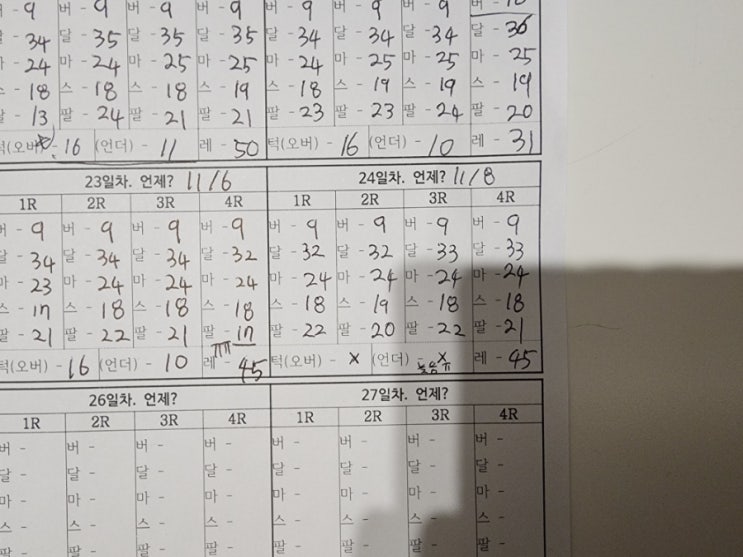 버 - 9 버 - 9 버 - 9 버 - 9 버 - 9 버 - 9 버 - 9 버 - 10
달 - 34 달 - 35 달 - 35 달 - 35 달 - 34 달 - 34 달 - 34 달 - 36
마 - 24 마 - 24 마 - 25 마 - 25 마 - 24 마 - 25 마 - 25 마 - 25
스 - 18 스 - 18 스 - 18 스 - 19 스 - 18 스 - 19 스 - 19 스 - 19
팔 - 13 팔 - 24 팔 - 21 팔 - 21 팔 - 23 팔 - 23 팔 - 24 팔 - 20
턱(오버) - 16 (언더) - 11 레 - 50 턱(오버) - 16 (언더) - 10 레 - 31
23일차. 언제? 11/6 24일차. 언제? 11/8
1R 2R 3R 4R 1R 2R 3R 4R
버 - 9 버 - 9 버 - 9 버 - 9 버 - 9 버 - 9 버 - 9 버 - 9
달 - 34 달 - 34 달 - 34 달 - 32 달 - 32 달 - 32 달 - 33 달 - 33
마 - 23 마 - 24 마 - 24 마 - 24 마 - 24 마 - 24 마 - 24 마 - 24
스 - 17 스 - 18 스 - 18 스 - 18 스 - 18 스 - 19 스 - 18 스 - 18
팔 - 21 팔 - 22 팔 - 21 팔 - 17 팔 - 22 팔 - 20 팔 - 22 팔 - 21
턱(오버) - 16 (언더) - 10 레 - 45 턱(오버) - X (언더) - X 레 - 45
늦음ㅠ
26일차. 언제? 27일차. 언제?
1R 2R 3R 4R 1R 2R 3R 4R
버 - 버 - 버 - 버 - 버 - 버 - 버 - 버 -
달 - 달 - 달 - 달 - 달 - 달 - 달 - 달 -
마 - 마 - 마 - 마 - 마 - 마 - 마 - 마 -
스 - 스 - 스 - 스 - 스 - 스 - 스 - 스 -
팔 - 팔 - 팔 - 팔 - 팔 - 팔 - 팔 - 팔 -